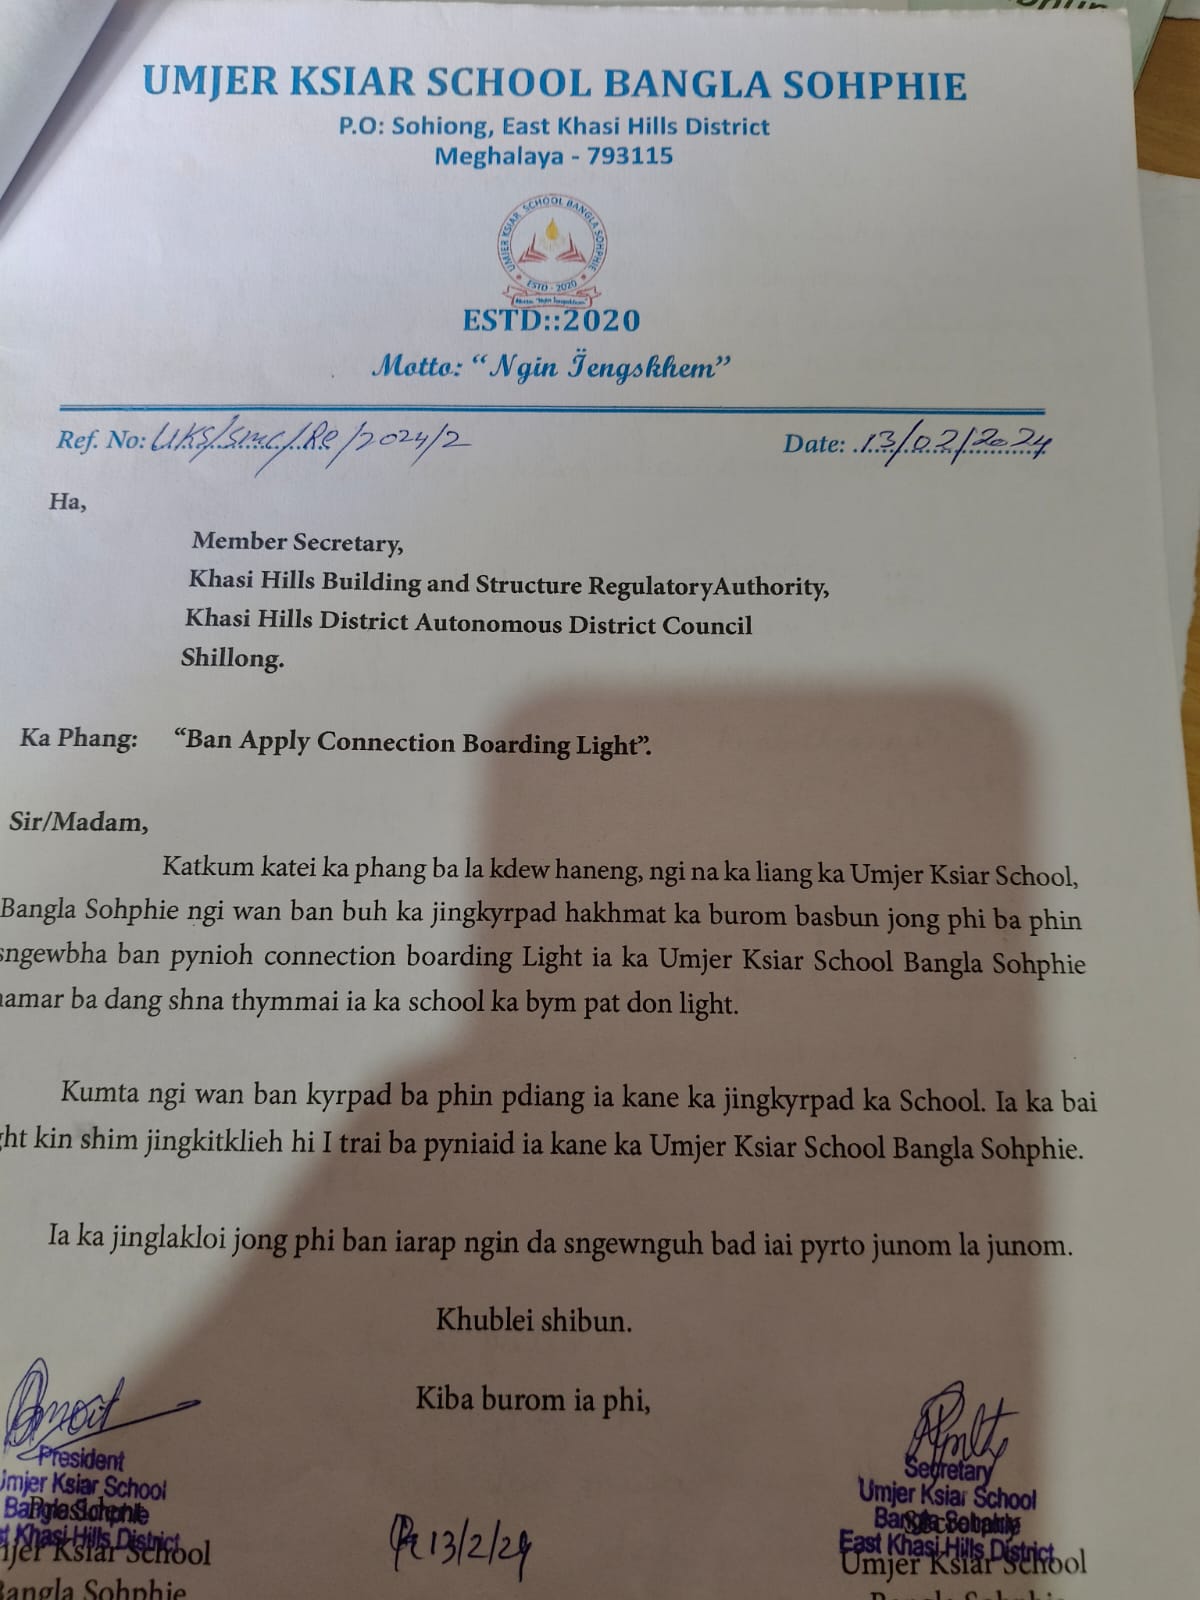 UMJER KSIAR SCHOOL BANGLA SOHPHIE
P.O: Sohiong, East Khasi Hills District
Meghalaya - 793115
UMJER KSIAR SCHOOL BANGLA SOHPHIE
ESTD - 2020
ESTD::2020
Motto: “Ngin Ïengskhem”
Ref. No: UKS/SMC/Re/2024/2 Date: 13/02/2024
Ha,
Member Secretary,
Khasi Hills Building and Structure RegulatoryAuthority,
Khasi Hills District Autonomous District Council
Shillong.
Ka Phang: “Ban Apply Connection Boarding Light”.
Sir/Madam,
Katkum katei ka phang ba la kdew haneng, ngi na ka liang ka Umjer Ksiar School,
Bangla Sohphie ngi wan ban buh ka jingkyrpad hakhmat ka burom basbun jong phi ba phin
sngewbha ban pynioh connection boarding Light ia ka Umjer Ksiar School Bangla Sohphie
namar ba dang shna thymmai ia ka school ka bym pat don light.
Kumta ngi wan ban kyrpad ba phin pdiang ia kane ka jingkyrpad ka School. Ia ka bai
ght kin shim jingkitklieh hi I trai ba pyniaid ia kane ka Umjer Ksiar School Bangla Sohphie.
Ia ka jinglakloi jong phi ban iarap ngin da sngewnguh bad iai pyrto junom la junom.
Khublei shibun.
Kiba burom ia phi,
President
Umjer Ksiar School
Khasi Hills District
Ksiar School
Bangla Sohphie
13/2/24
Secretary
Umjer Ksiar School
East Khasi Hills District
Umjer Ksiar School